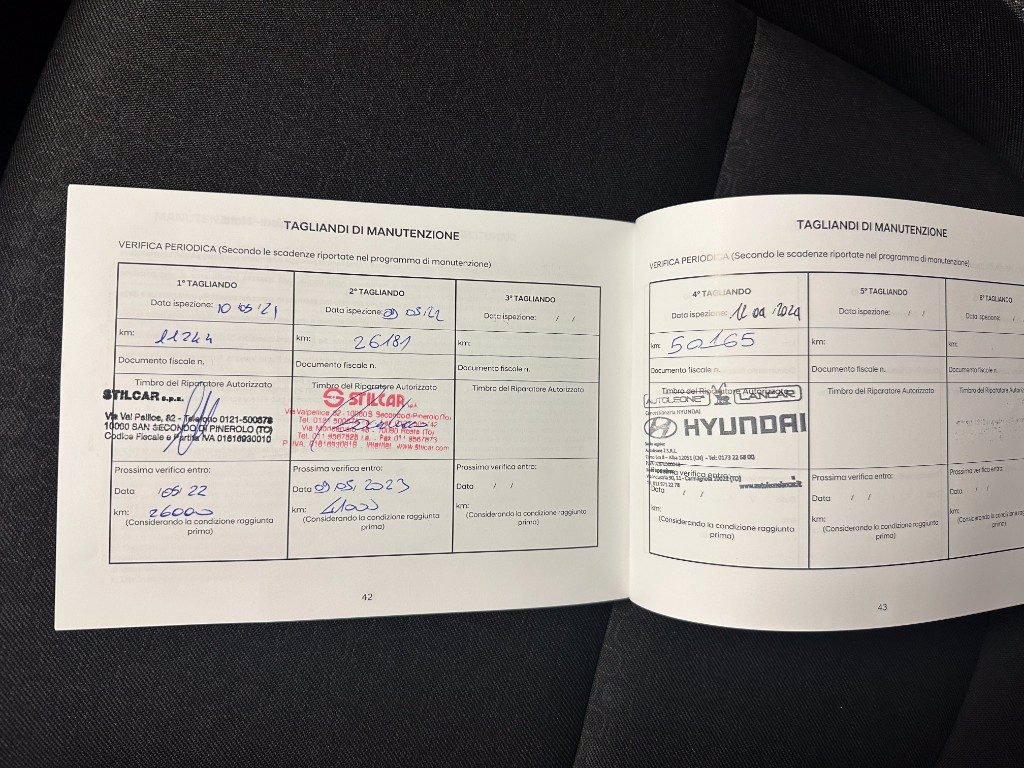 TAGLIANDI DI MANUTENZIONE
VERIFICA PERIODICA (Secondo le scadenze riportate nel programma di manutenzione)
1° TAGLIANDO
Data ispezione: 10 05 21
km: 11244
Documento fiscale n.
Timbro del Riparatore Autorizzato
STILCAR s.p.a.
Via Val Pellice, 82 - Telefono 0121-500678
10060 SAN SECONDO DI PINEROLO (TO)
Codice Fiscale e Partita IVA 01616930010
Prossima verifica entro:
Data /05/22
km: 26000
(Considerando la condizione raggiunta
prima)
2° TAGLIANDO
Data ispezione: 09 05/22
km: 26181
Documento fiscale n.
Timbro del Riparatore Autorizzato
STILCAR
Prossima verifica entro:
Data 09/05/2023
km: 41000
(Considerando la condizione raggiunta
prima)
3° TAGLIANDO
Data ispezione: / /
km:
Documento fiscale n.
Timbro del Riparatore Autorizzato
Prossima verifica entro:
Data / /
km:
(Considerando la condizione raggiunta
prima)
42
TAGLIANDI DI MANUTENZIONE
VERIFICA PERIODICA (Secondo le scadenze riportate nel programma di manutenzione)
4° TAGLIANDO
Data ispezione: 2024
km: 50165
Documento fiscale n.
Timbro del Riparatore Autorizzato
AUTOLEONE 2 LANCAR
Concessionaria HYUNDAI
HYUNDAI
Prossima verifica entro:
Data / /
km:
(Considerando la condizione raggiunta
prima)
5° TAGLIANDO
Data ispezione: / /
km:
Documento fiscale n.
Timbro del Riparatore Autorizzato
Prossima verifica entro:
Data / /
km:
(Considerando la condizione raggiunta
prima)
6° TAGLIANDO
Data ispezione: /
km:
Documento fiscale n.
Timbro del Riparatore Autori
Prossima verifica entro:
Data / /
km:
(Considerando la condizione rag
prima)
43